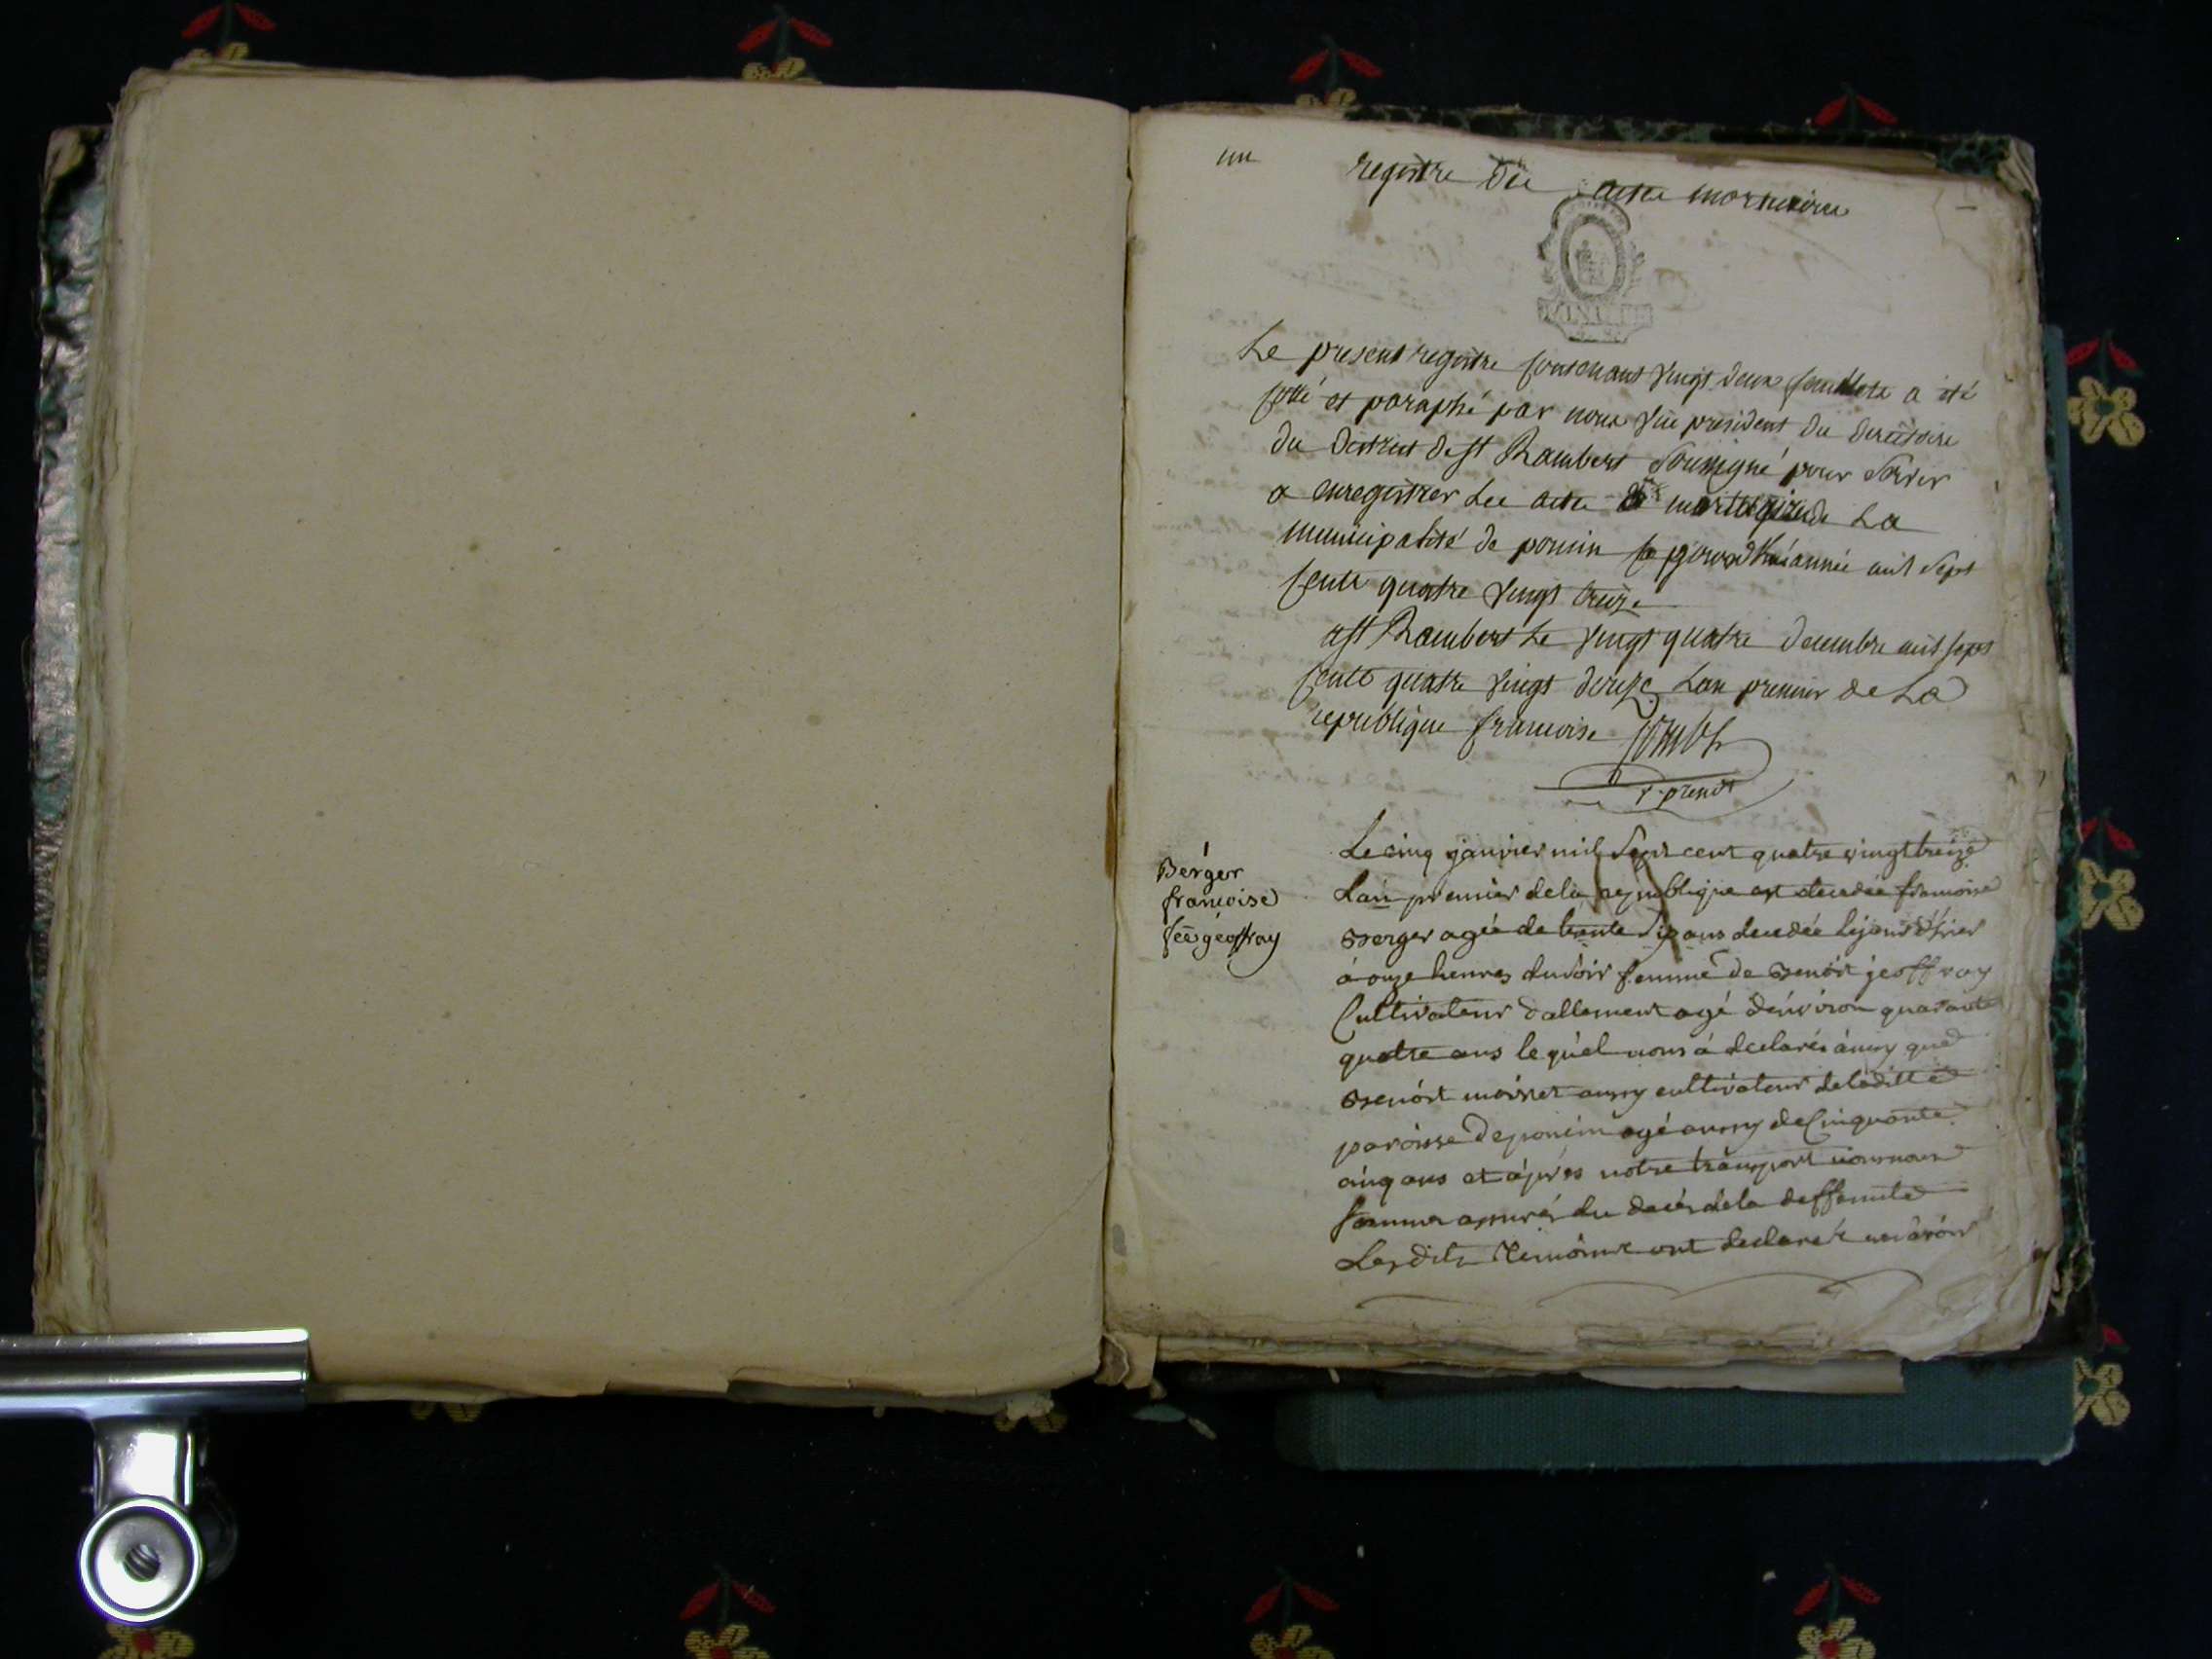 un
registre des actes mortuaires
Le present registre contenant vingt deux feuillets a été
cotté et paraphé par nous vice president du directoire
du district de st Rambert soussigné pour servir
a enregistrer les actes mortuaires de La
municipalité de poncin pour année mil sept
cents quatre vingt treize
a st Rambert Le vingt quatre decembre mil sept
cents quatre vingt douze Lan premier de La
republique francoise
v. presidt
1
Berger
francoise
fēe géoffray
Le cinq janvier mil sept cent quatre vingt treize
Lan premier de la republique est decedée francoise
Berger agée de trente six ans decedée le jour d'hier
á onze heures du soir femme de Benoit jeoffray
Cultivateur dallement agé d'environ quarante
quatre ans le quel nous á declarés aussy que
Benoit moirret aussy cultivateur de laditte
paroisse de poncin agé aussy de Cinquante
cinq ans et áprés notre transport nous nous
sommes assurés du decés de la deffunte
Lesdits temoins ont declarés